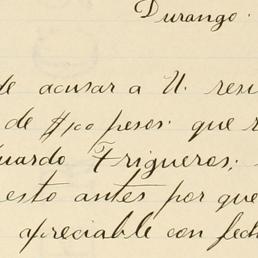 Durango.
de acusar a U. resi
de $100 pesos. que r
uardo Frigueros;
esto antes por que
apreciable con fech